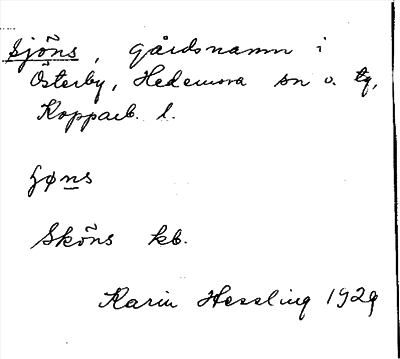 Sjöns, gårdsnamn i
Österby, Hedemora sn o. tg,
Kopparb. l.
ʃøns
Sköns kb.
Karin Hessling 1929